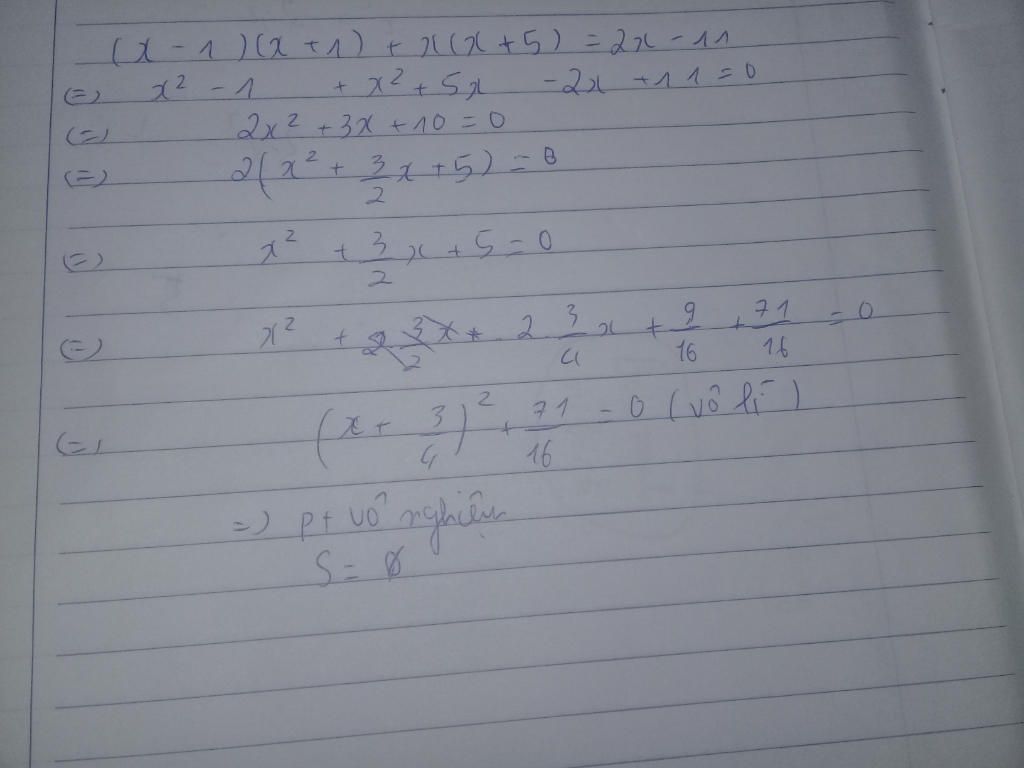 (x - 1)(x + 1) + x(x + 5) = 2x - 11
(=) x² - 1 + x² + 5x - 2x + 11 = 0
(=) 2x² + 3x + 10 = 0
(=) 2(x² + 3/2 x + 5) = 0
(=) x² + 3/2 x + 5 = 0
(=) x² + 2 3/4 x + 9/16 + 71/16 = 0
(=) (x + 3/4)² + 71/16 = 0 (vô lí)
=) pt vô nghiệm
S = ∅